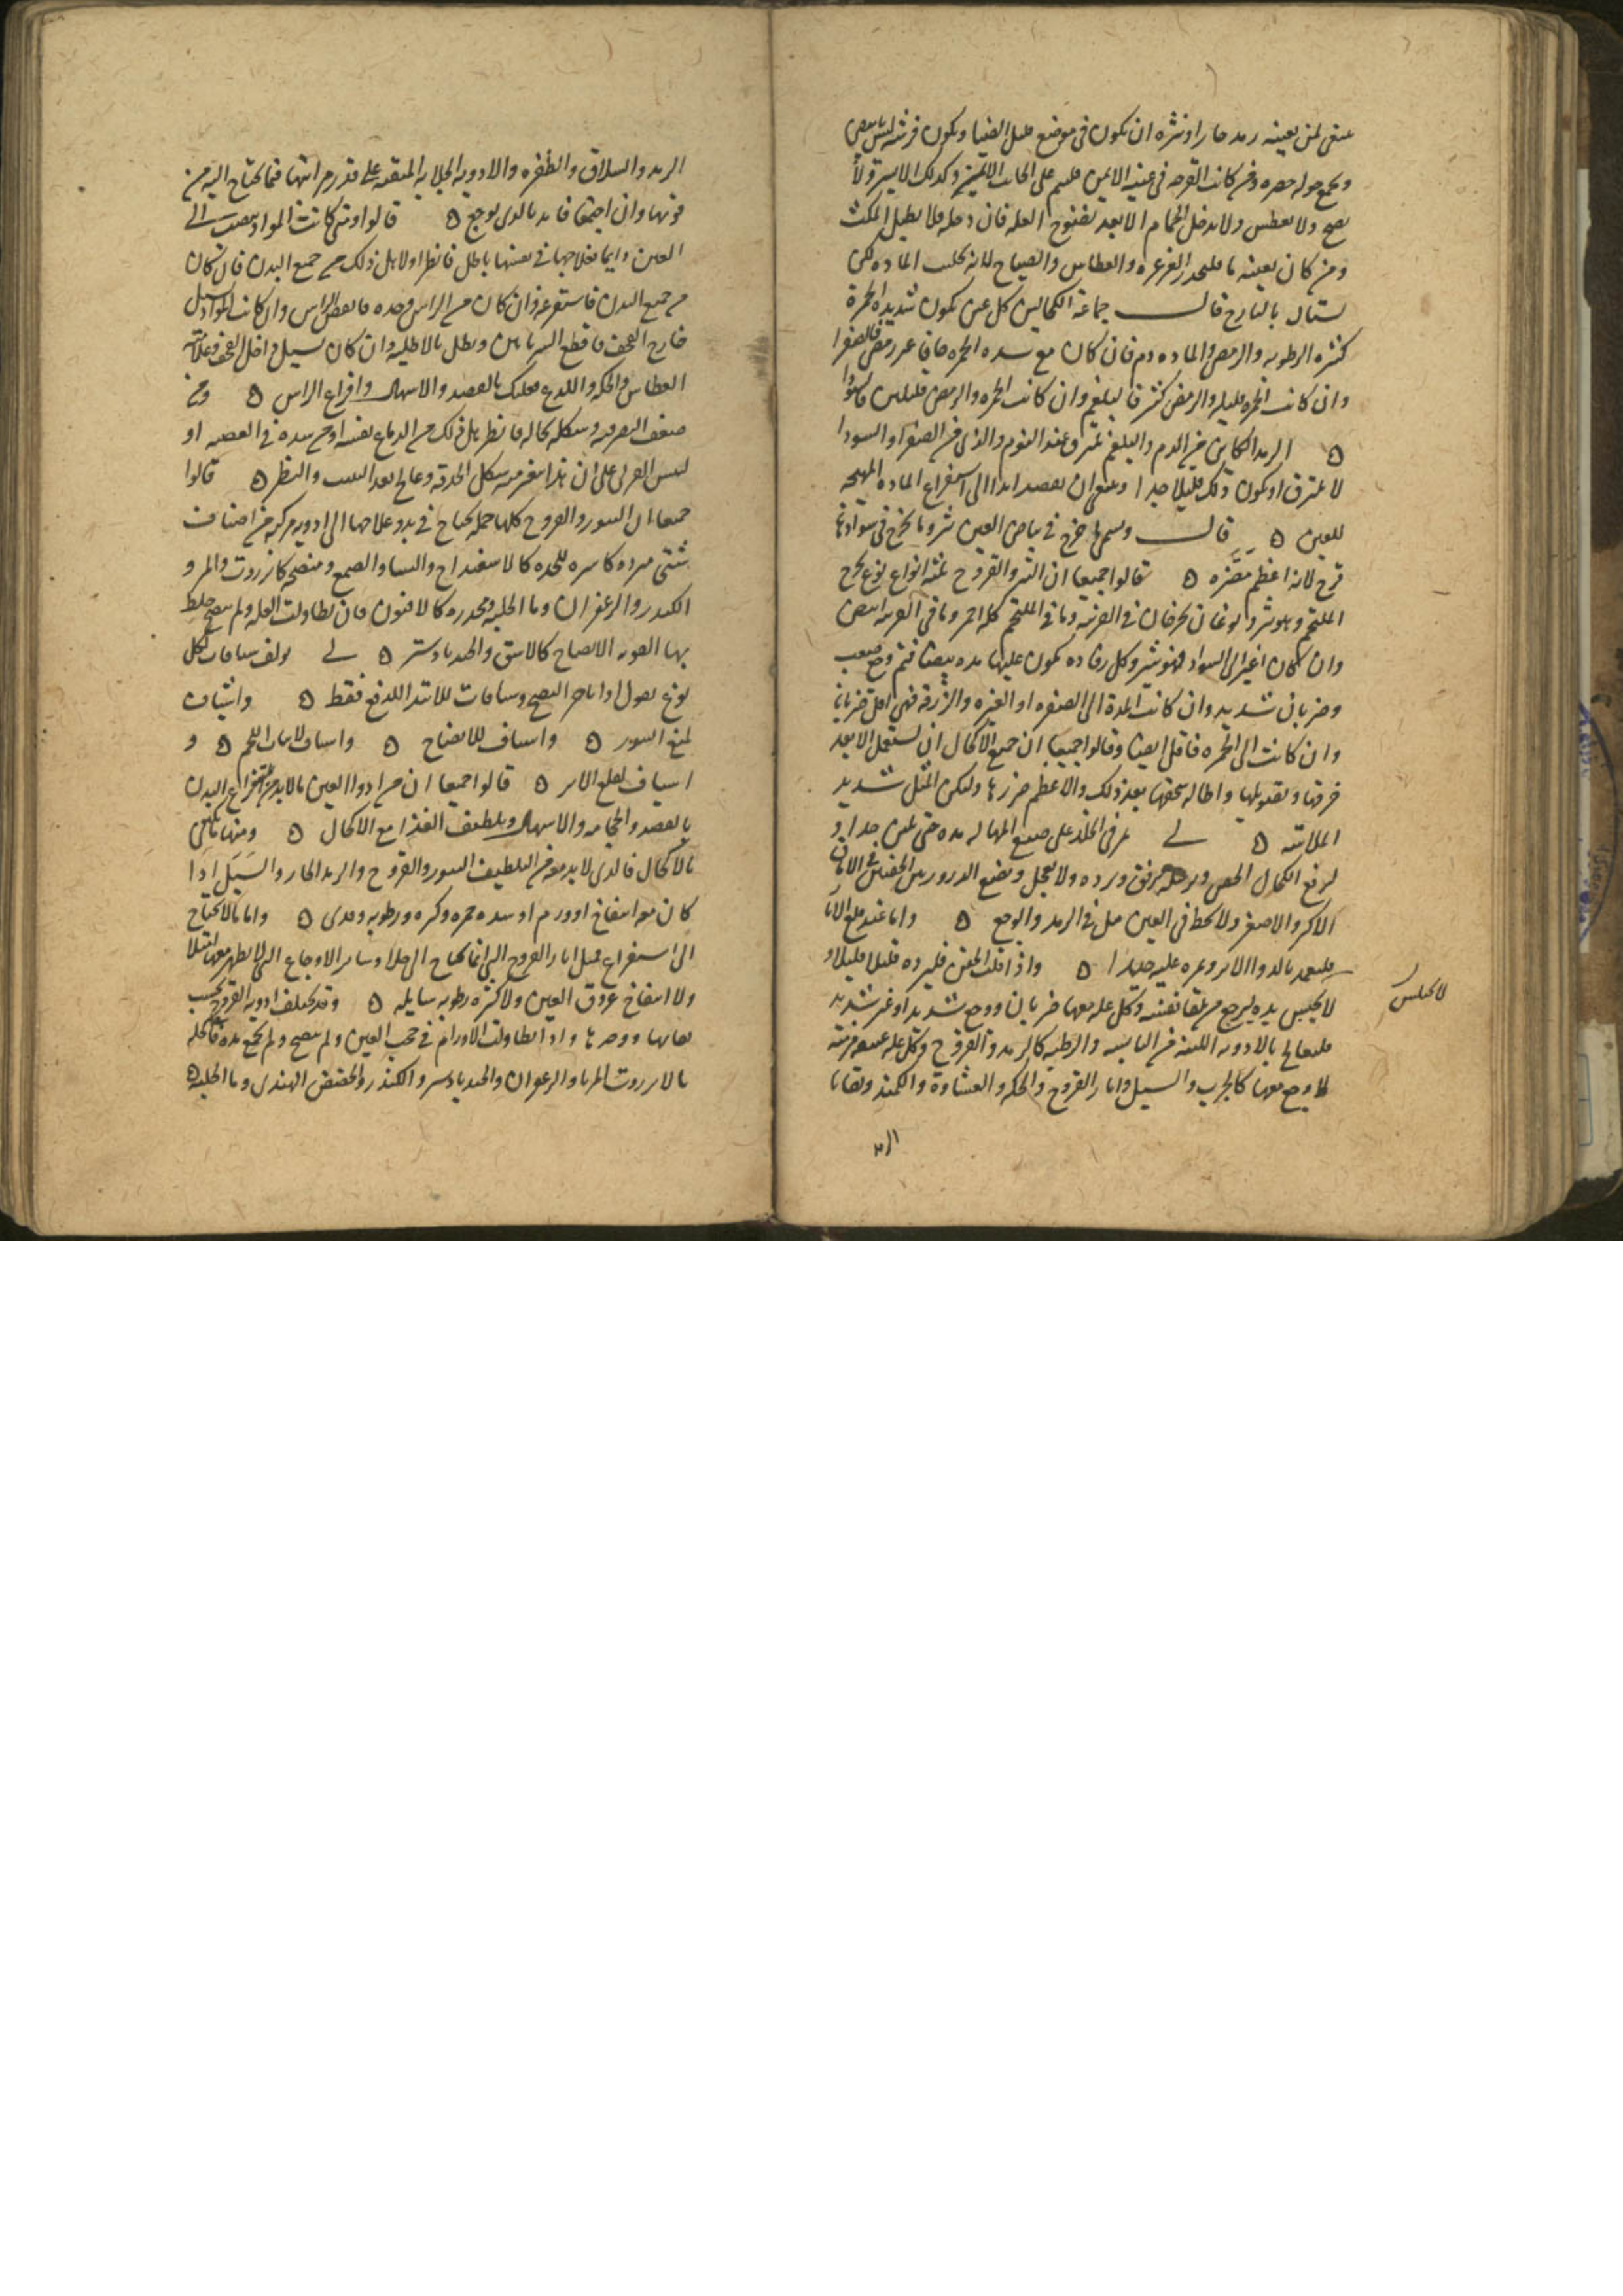 ينبغى لمن بعينه رمد حار او بثره ان يكون فى موضع قليل الضيا ويكون فرشه ليس بابيض
ويجمع حوله خضره ومن كانت القرحه فى عينه الايمن فلينم على الجانب الايمن وكذلك الايسر ولا
يصح ولا يعطس ولا يدخل الحمام الا بعد نضوح العله فان دخله فلا يطيل المكث
ومن كان بعينه ما فليحذر الغرغره والعطاس والصياح لانه يجلب الماده لكن
يستال بالتارج قال جماعة الكحالين كل عين يكون شديده الحمرة
كثيره الرطوبه والرمص والماده دم فان كان مع شده الحمره جافا غير رمض فالصفرا
وان كانت الحمره قليله والرمص كثير فالبلغم وان كانت الحمره والرمص قليلين فالسودا
الرمد الكاين من الدم والبلغم يلتزق عند النوم والذى من الصفرا والسودا
لا يلتزق او يكون ذلك قليلا جدا وينبغى ان يقصد ابدا الى استفراغ الماده المهيجه
للعين قال وسمى ما خرج فى بياض العين بثر وما يخرج فى سوادها
قرح لانه اعظم مضره قالوا جميعا ان البثر والقروح ثلثه انواع نوع يخرج
الملتحم وهو بثر ونوعان يخرجان فى القرنيه وما فى الملتحم كله احمر وما فى القرنيه ابيض
وان كان اغبر الى السواد فهو بثر وكل رفاده يكون عليها مده بيضا فثم وجع صعب
وضربان شديد وان كانت المدة الى الصفره او الغبره والزرقه فهى اقل ضربانا
وان كانت الى الحمره فاقل ايضا وقالوا جميعا ان جميع الاكحال ان يستعمل الا بعد
خرقها وتصويلها واطاله سحقها بعد ذلك والا عظم ضررها وليكن الميل شديد
الملاسه لى يمر فى الجلد على صبيغ المهاله مده حتى يلين جدا و
ليرفع الكحال الجفن ويرسله برفق ويرده ولا يعجل ويضع الذرور بين الجفنين فى الاماق
الاكبر والاصغر ولا يخط فى العين ميل فى الرمد والوجع واما عند قلع الاثار
فليعمد بالدوا الاثر ويمره عليه جيدا واذا قلب الجفن فليرده قليلا قليلا و
لا يحبس يده ليرجع من تلقا نفسه وكل عله معها ضربان ووجع شديد او غير شديد
فليعالج بالادويه اللينه من اليابسه والرطبه كالرمد والقروح وكل عله عتيقه مزمنه
لا وجع معها كالجرب والسبل واثار القروح والحكه والغشاوة والكمنه وبقايا
لا يجلس
الر
الرمد والسلاق والظفره والادويه الجلايه المنقيه على قدر مراتبها فيما يحتاج اليه من
قوتها وان اجتمعا فابد بالذى يوجع قالوا ومتى كانت المواد تنصب الى
العين دايما فعلاجها فى نفسها باطل فانظر اولا هل ذلك من جميع البدن فان كان
من جميع البدن فاستفرغه وان كان من الراس وحده فانفض الراس وان كانت المواد تسيل
خارج القحف فاقطع الشريانين ويطلى بالاطليه وان كان يسيل داخل القحف وعلامته
العطاس والحكه واللدع فعليك بالفصد والاسهال وافراغ الراس ومن
ضعف البصر فيه وشكله بحاله فانظر هل ذلك من الدماغ نفسه او من سده فى العصبه او
ليبس العين على ان هذا يتغير فيه شكل الحدقه وعالج بعد التثبت والنظر قالوا
جميعا ان البثور والقروح كلها جمله يحتاج فى بدو علاجها الى ادويه مركبه من اصناف
شتى مبرده كاسره للحده كالاسفيداج والنشا والصمغ ومنضجه كانزروت والمر و
الكندر والزعفران وما الحلبه ومخدره كالافيون فان تطاولت العله ولم تنضج خلط
بها القويه الانضاج كالاشق والجندبادستر لى يولف شيافات لكل
نوع يصلح اذا تاخر النضج وشيافات للابتدا للدفع فقط واشياف
لمنع البثور واشياف للانضاج واشياف لانبات اللحم و
اشياف لقلع الاثر قالوا جميعا ان من ادوا العين ما لا بد من استفراغ البدن
بالفصد والحجامه والاسهال وتلطيف الغذا مع الاكحال ومنها ما يكتفى
بالاكحال فالذى لا بد معه من التلطيف البثور والقروح والرمد الحار والسبل اذا
كان معه انتفاخ او ورم او شده حمره وكثره ورطوبه وقذى واما ما لا يحتاج
الى استفراغ فمثل اثار القروح التى انما يحتاج الى جلا وساير الاوجاع التى لا يظهر معها امتلا
ولا انتفاخ عروق العين ولا كثره رطوبه سايله وقد تختلف ادويه القروح بحسب
نقايها ووضرها واذا تطاولت الاورام فى حجب العين ولم تنضج ولم تجمع مده فاكحله
بالانزروت المربا والزعفران والجندبادستر والكندر والحضض الهندى وما الحلبه